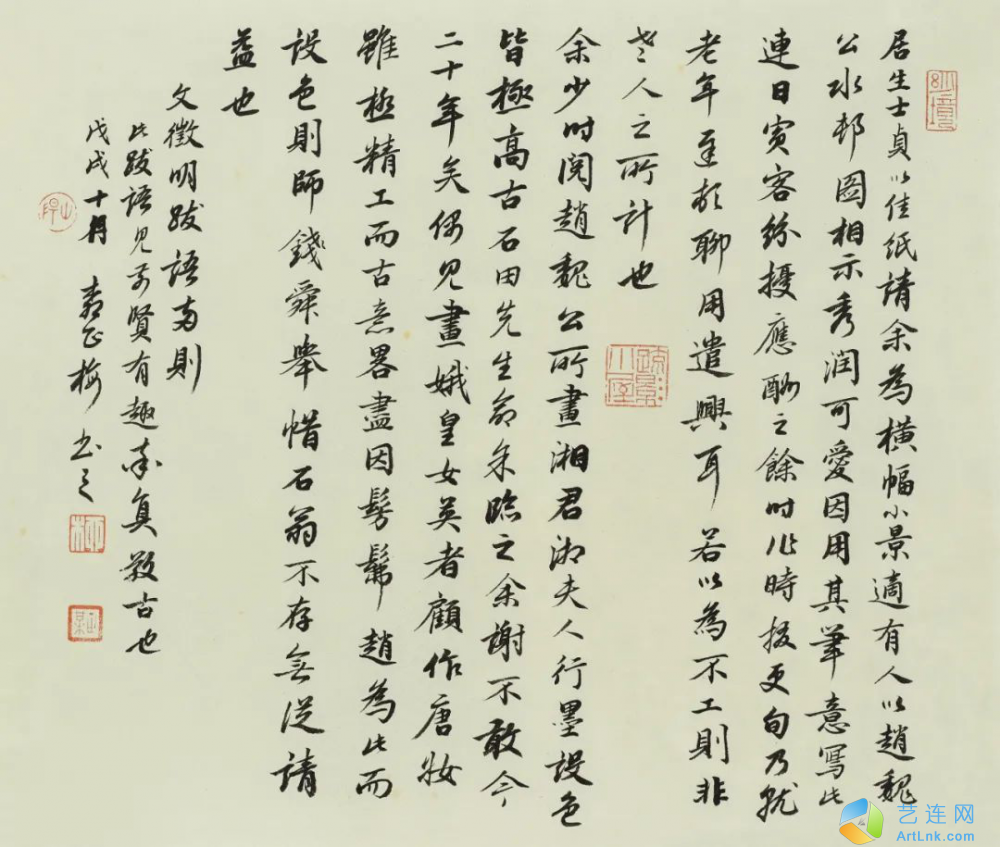 居生士貞以佳紙請余為橫幅小景適有人以趙魏
公水邨圖相示秀潤可愛因用其筆意寫此
連日賓客紛擾應酬之餘时作時掇更旬乃就
老年聊用遣興耳若以為不工則非
老人之所計也
余少时閱趙魏公所畫湘君湘夫人行墨設色
皆極高古石田先生命余臨之余謝不敢今
二十年矣偶見畫娥皇女英者顧作唐妝
雖極精工而古意畧盡因髣髴趙為此而
設色則師錢舜舉惜石翁不存無從請
益也
文徵明跋語兩則
此跋語見前賢有趣求真古也
戊戌十月 正梅 書之
艺连网
ArtLnk.com